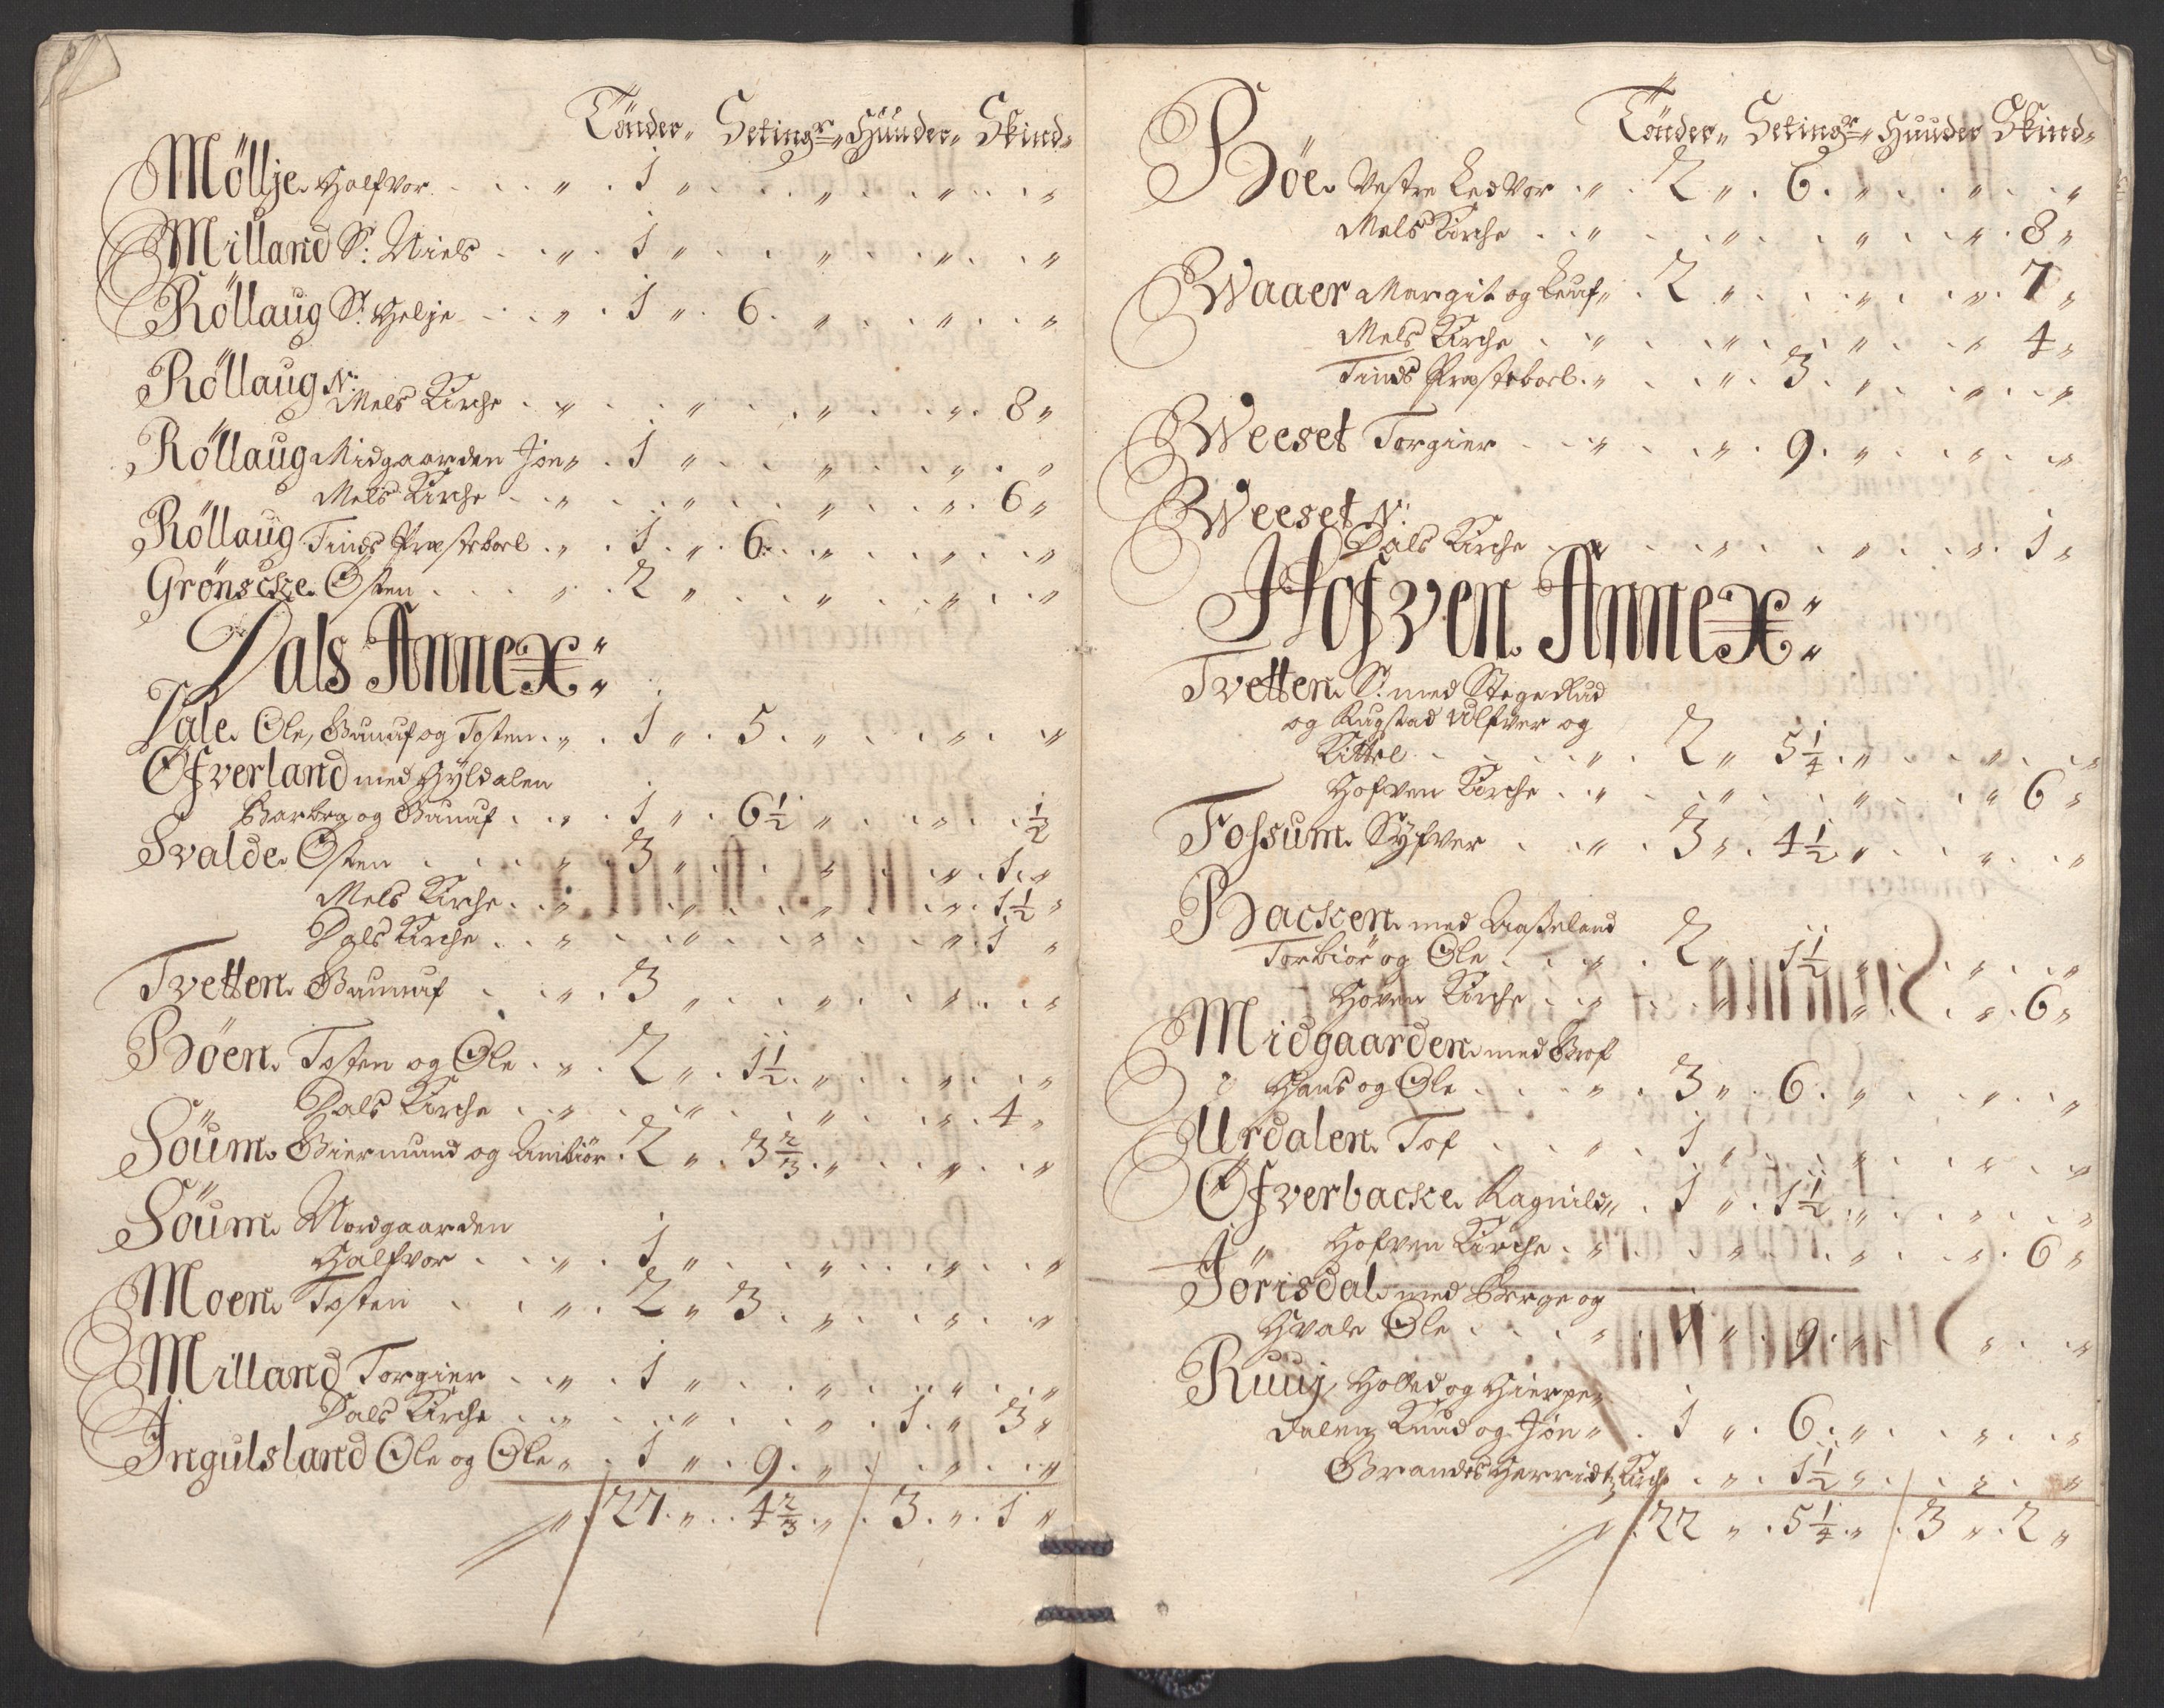 Tönder„ Setingr„ Hüuder„ Skind„
Möllje Halfvor . . . „ . 1 „ . . „ . . „ . . „
Milland S: Niels . . „ . 1 „ . . „ . . „ . . „
Röllaug S: Helje . . „ . 1 „ . 6. „ . . „ . . „
Röllaug N:
Mels Kirche . . „ . . „ . . „ . . „ . 8 „
Röllaug Midgaarden Jon„ . 1 „ . . „ . . „ . . „
Mels Kirche . . „ . . „ . . „ . . „ . 6 „
Röllaug Tinds Præsteboel . „ . 1 . „ . 6. . „ . . „ . . „
Grönscke Østen . . . „ . 2 „ . . „ . . „ . . „
Dals Annex:
Dale Ole, Gunuf og Tosten . „ . 1 „ . 5 . „ . . „ . . „
Øfverland med Gyldalen
Barbro og Gunuf . . „ . 1 „ . 6½ „ . . „ . . ½
Svalde Østen . . . „ . 3 „ . . „ . . „ . 1 . „
Mels Kirche . . „ . . „ . . „ . . „ . 1½ „
Dals Kirche . . „ . . „ . . „ . . „ . 1 „
Tvetten Gunnuf . . „ . 3 „ . . „ . . „ . . „
Böen Tosten og Ole . „ . 2 „ . 1½ . „ . . „ . . „
Dals Kirche . . „ . . „ . . „ . . „ . 4 „
Söum Giermund og . 2 „ . 3⅔ . „ . . „ . . „
Söum Nordgaarden
Halfvor . . . „ . 1 „ . . „ . . „ . . „
Moen Tosten . . „ . 2 „ 3 . „ . . „ . . „
Milland Torgier . . „ . 1 „ . . „ . . „ . . „
Dals Kirche . . „ . . „ . . „ . 1 . „ 3 „
Ingulsland Ole og Ole „ . 1 „ . 9 . „ . . „ . . „
„ . 27 . „ . . 4⅔ . „ . 3 . „ . 1 „
Tönder„ Setingr„ Huuder Skind„
Böe Vestre Ledvor . „ . 2 „ . 6 . „ . . „ . . „
Mels Kirche . . „ . . „ . . „ . . „ . 8 „
Waaer Margit og Leuf „ . 2 „ . . „ . . „ . 7 „
Mels Kirche . . „ . . „ . . „ . . „ 4 „
Tinds Præsteboel . „ . . „ . 3 . „ . . „ . . „
Weeset Torgier . . „ . . „ . 9 . „ . . „ . . „
Weeset N:
Dals Kirche . . „ . . „ . . „ . . „ . 1 „
Hofven Annex:
Tvetten S: med Stegerud
og Rugstad Ulfver og
Kittel . . . „ . 2 „ 5¼ . „ . . „ . . „
Hofven Kirche . . „ . . „ . . „ . . „ 6 „
Fossum Syfver . . „ . 3 „ . 4½ „ . . „ . . „
Backen med Aasseland
Torbiör og Ole . . „ . 2 „ . 1½ „ . . „ . . „
Hoven Kirche . . „ . . „ . . „ . . „ . 6 „
Midgaarden med Grof
Hans og Ole . . . „ . 3 „ . 6 . „ . . „ . . „
Urdalen Tof . . „ . 1 „ . . „ . . „ . . „
Øfverbacke Ragnild „ . 1 „ . 1½ „ . . „ . . „
Hofven Kirche . „ . . „ . . „ . . „ . 6 „
Jörisdal med Berge og
Hvale Ole . . . „ . 1 „ . 9 . „ . . „ . . „
Ruuj, Holted og Hierpe-
dalen Knud og Jon „ . 1 „ . 6 . „ . . „ . . „
Grandsherridtz Kirche . . „ . 1½ „ . . „ . . „
„ . 22 „ . 5¼ . „ . 3 „ . 2 „